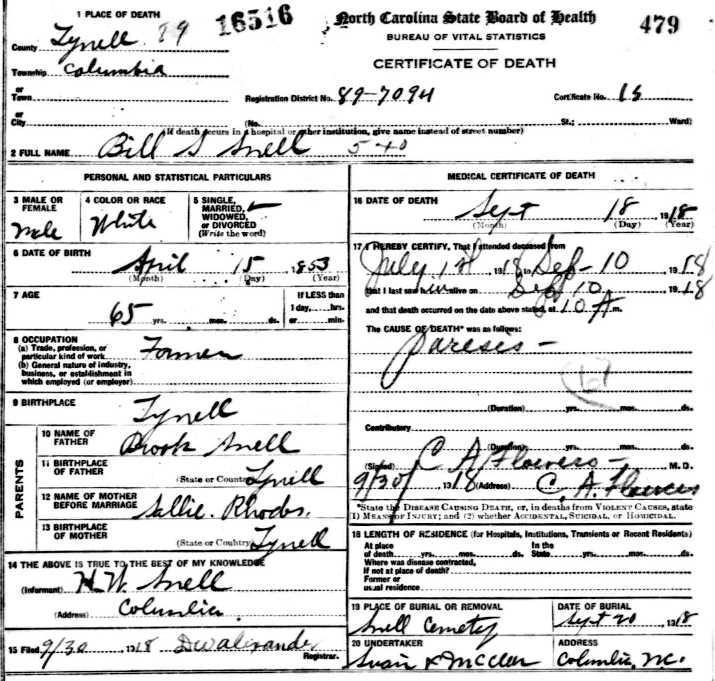 1 PLACE OF DEATH
County Tyrrell 89
16516
North Carolina State Board of Health
BUREAU OF VITAL STATISTICS
479
CERTIFICATE OF DEATH
Township Columbia
or
Town
Registration District No. 89-7094
Certificate No. 15
or
City (No. St.; Ward)
(If death occurs in a hospital or other institution, give name instead of street number)
2 FULL NAME Bill S Snell 540
PERSONAL AND STATISTICAL PARTICULARS
3 MALE OR
FEMALE
Male
4 COLOR OR RACE
White
5 SINGLE,
MARRIED,
WIDOWED,
or DIVORCED
(Write the word)
6 DATE OF BIRTH
April 15 1853
(Month) (Day) (Year)
7 AGE
65 yrs. mos. ds.
If LESS than
1 day, hrs.
or min.
8 OCCUPATION
(a) Trade, profession, or
particular kind of work Farmer
(b) General nature of industry,
business, or establishment in
which employed (or employer)
9 BIRTHPLACE
Tyrrell
PARENTS
10 NAME OF
FATHER Brook Snell
11 BIRTHPLACE
OF FATHER
(State or Country) Tyrrell
12 NAME OF MOTHER
BEFORE MARRIAGE Sallie Rhodes
13 BIRTHPLACE
OF MOTHER
(State or Country) Tyrrell
14 THE ABOVE IS TRUE TO THE BEST OF MY KNOWLEDGE
(Informant) H W Snell
(Address) Columbia
15 Filed 9/30 1918 D W Alexander
Registrar.
MEDICAL CERTIFICATE OF DEATH
16 DATE OF DEATH
Sept 18 1918
(Month) (Day) (Year)
17 I HEREBY CERTIFY, That I attended deceased from
July 1st 1918 to Sep-10 1918
that I last saw him alive on Sep 10 1918
and that death occurred on the date above stated, at 10 A m.
The CAUSE OF DEATH* was as follows:
Pareses-
(Duration) yrs. mos. ds.
Contributory
(Duration) yrs. mos. ds.
(Signed) C A Flowers- M. D.
9/30 1918 (Address) C. A. Flowers
*State the DISEASE CAUSING DEATH, or, in deaths from VIOLENT CAUSES, state
(1) MEANS OF INJURY; and (2) whether ACCIDENTAL, SUICIDAL, or HOMICIDAL.
18 LENGTH OF RESIDENCE (for Hospitals, Institutions, Transients or Recent Residents)
At place In the
of death yrs. mos. ds. State yrs. mos. ds.
Where was disease contracted,
If not at place of death?
Former or
usual residence
19 PLACE OF BURIAL OR REMOVAL
Snell Cemetery
DATE OF BURIAL
Sept 20 1918
20 UNDERTAKER
Swain & McClees
ADDRESS
Columbia, N.C.